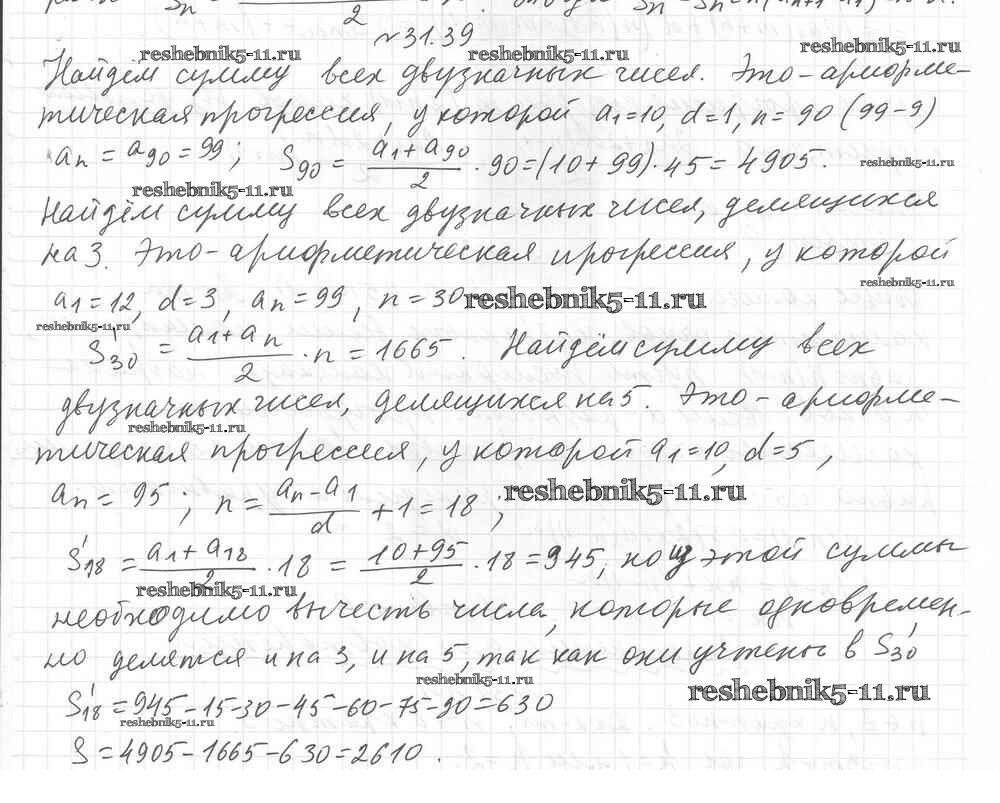 2
№31.39
reshebnik5-11.ru reshebnik5-11.ru reshebnik5-11.ru
Найдём сумму всех двузначных чисел. Это - арифме-
тическая прогрессия, у которой a₁=10, d=1, n=90 (99-9)
aₙ = a₉₀ = 99; S₉₀ = (a₁+a₉₀)/2 · 90 = (10+99)·45 = 4905.
reshebnik5-11.ru reshebnik5-11.ru
Найдём сумму всех двузначных чисел, делящихся
на 3. Это - арифметическая прогрессия, у которой
reshebnik5-11.ru
a₁=12, d=3, aₙ=99, n=30 reshebnik5-11.ru
reshebnik5-11.ru
S'₃₀ = (a₁+aₙ)/2 · n = 1665. Найдём сумму всех
двузначных чисел, делящихся на 5. Это - арифме-
reshebnik5-11.ru
тическая прогрессия, у которой a₁=10, d=5,
aₙ = 95; n = (aₙ-a₁)/d + 1 = 18; reshebnik5-11.ru
S'₁₈ = (a₁+a₁₈)/2 · 18 = (10+95)/2 · 18 = 945, но из этой суммы
reshebnik5-11.ru
необходимо вычесть числа, которые одновремен-
но делятся и на 3, и на 5, так как они учтены в S'₃₀
reshebnik5-11.ru reshebnik5-11.ru
S'₁₈ = 945-15-30-45-60-75-90=630
reshebnik5-11.ru
S = 4905-1665-630=2610.